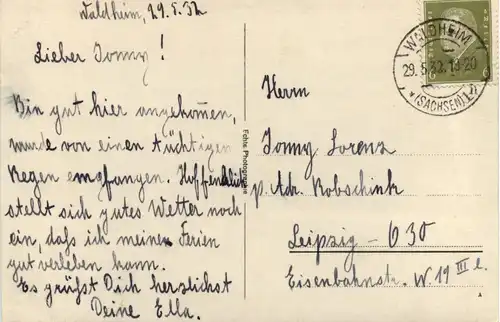 Waldheim, 29.5.32
Lieber Jonny!
Bin gut hier angekommen,
wurde von einen tüchtigen
Regen empfangen. Hoffenlich
stellt sich gutes Wetter noch
ein, daß ich meinen Ferien
gut verleben kann.
Es grüßt Dich herzlichst
Deine Ella.
Echte Photographie
WALDHEIM
29.5.32.18-20
(SACHSEN)
Herrn
Jonny Lorenz
p. Adr. Robschink
Leipzig - O 30
Eisenbahnstr. W. 19 III l.